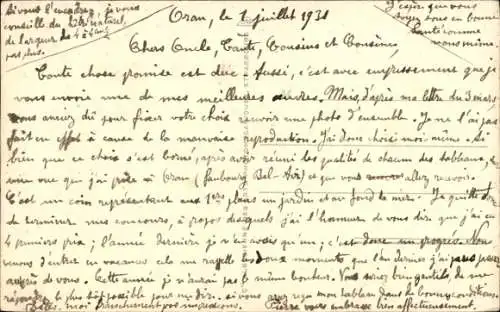 si vous l'encadrez, je vous
conseille du naturel,
de largeur de 4 à 6 cms
pas plus.
J'espère que vous
soyez tous en bonne
santé comme
nous même.
Oran, le 1 juillet 1931
Chers Oncle, Tante, Cousins et Cousine,
Toute chose promise est due. Aussi, c'est avec empressement que je
vous envoie une de mes meilleures œuvres. Mais, d'après ma lettre du 3 mars
vous auriez dû pour fixer votre choix recevoir une photo d'ensemble. Je ne l'ai pas
fait en effet à cause de la mauvaise reproduction. J'ai donc choisi moi-même. Si
bien que ce choix s'est borné, après avoir réuni les qualités de chacun des tableaux, à
une vue que j'ai prise à Oran (faubourg Bel-Air) et que vous allez recevoir.
C'est un coin représentant aux 1ers plans un jardin et au fond la mer. Je
de terminer mes concours, à propos desquels j'ai l'honneur de vous dire que j'ai eu
4 premiers prix; l'année dernière je n'en avais qu'un; c'est donc un progrès. Nous
venons d'entrer en vacances cela me rappelle les doux moments que l'an dernier j'ai passés
auprès de vous. Cette année je n'aurai pas le même bonheur. Vous serez bien gentils de me
répondre le plus tôt possible pour me dire si vous avez reçu mon tableau dans de bonnes conditions.
moi franchement pas
Pierre vous embrasse bien affectueusement.